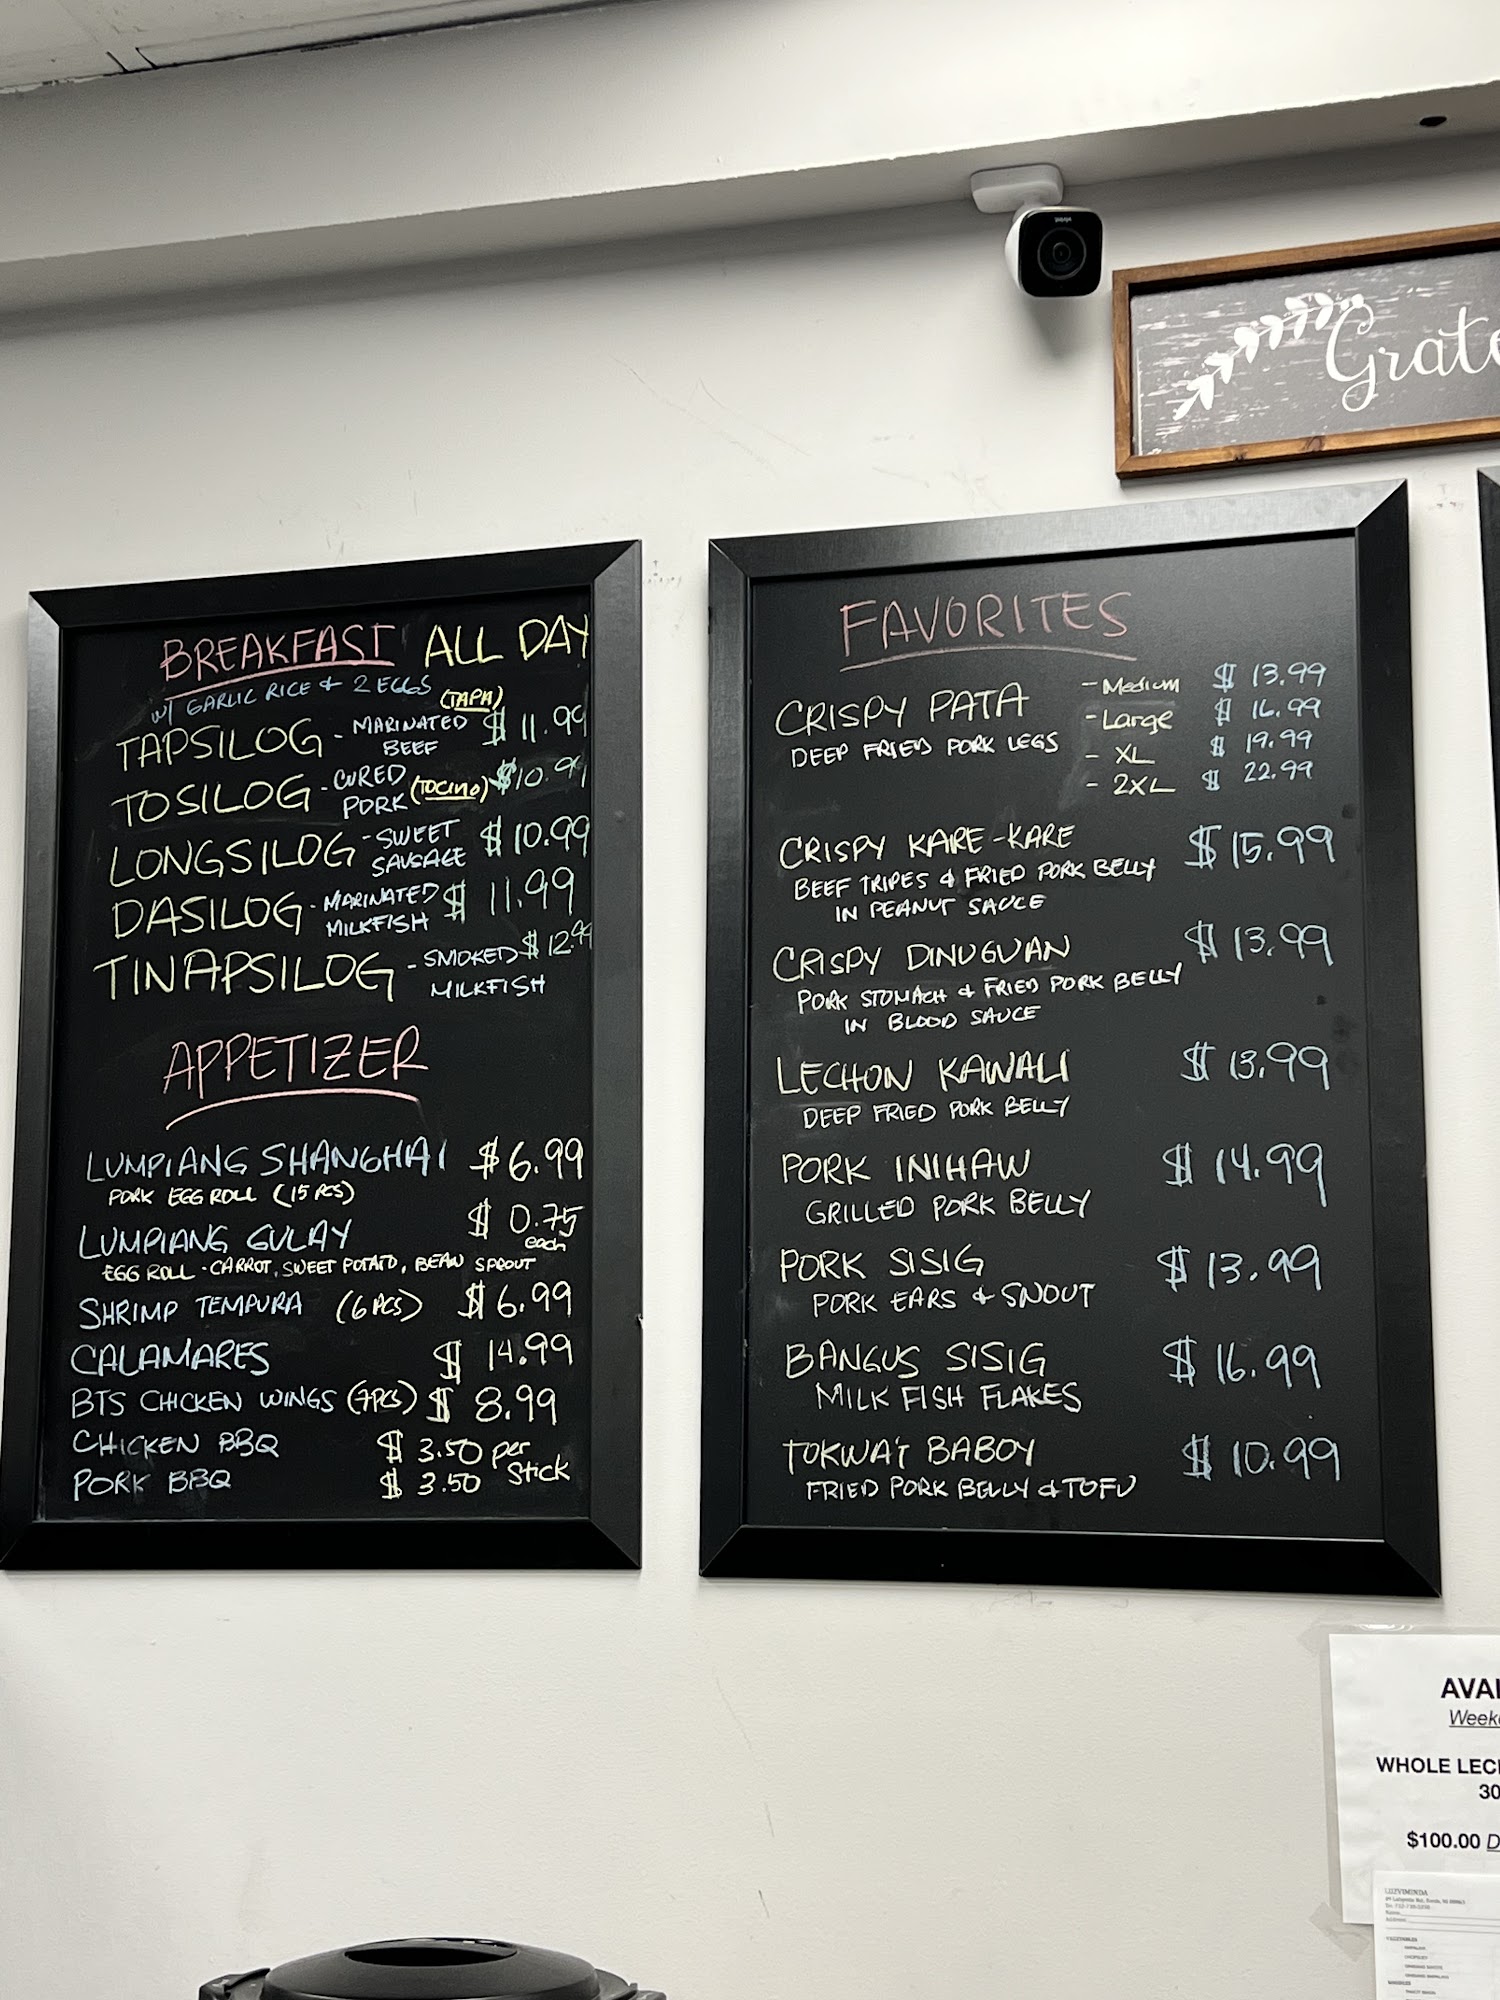 Grate
BREAKFAST ALL DAY
W/ GARLIC RICE & 2 EGGS
TAPSILOG - MARINATED BEEF (TAPA) $ 11.99
TOSILOG - CURED PORK (TOCINO) $10.99
LONGSILOG - SWEET SAUSAGE $ 10.99
DASILOG - MARINATED MILKFISH $ 11.99
TINAPSILOG - SMOKED MILKFISH $ 12.99
APPETIZER
LUMPIANG SHANGHAI $6.99
PORK EGG ROLL (15 PCS)
LUMPIANG GULAY $ 0.75 each
EGG ROLL - CARROT, SWEET POTATO, BEAN SPROUT
SHRIMP TEMPURA (6 PCS) $6.99
CALAMARES $ 14.99
BTS CHICKEN WINGS (7PCS) $ 8.99
CHICKEN BBQ $ 3.50 per stick
PORK BBQ $ 3.50
FAVORITES
CRISPY PATA - Medium $ 13.99
DEEP FRIED PORK LEGS - Large $ 16.99
- XL $ 19.99
- 2XL $ 22.99
CRISPY KARE-KARE $15.99
BEEF TRIPES & FRIED PORK BELLY
IN PEANUT SAUCE
CRISPY DINUGUAN $ 13.99
PORK STOMACH & FRIED PORK BELLY
IN BLOOD SAUCE
LECHON KAWALI $ 13.99
DEEP FRIED PORK BELLY
PORK INIHAW $ 14.99
GRILLED PORK BELLY
PORK SISIG $ 13.99
PORK EARS & SNOUT
BANGUS SISIG $ 16.99
MILK FISH FLAKES
TOKWA'T BABOY $ 10.99
FRIED PORK BELLY & TOFU
AVAI
Week
WHOLE LEC
30
$100.00 D
LUZVIMINDA